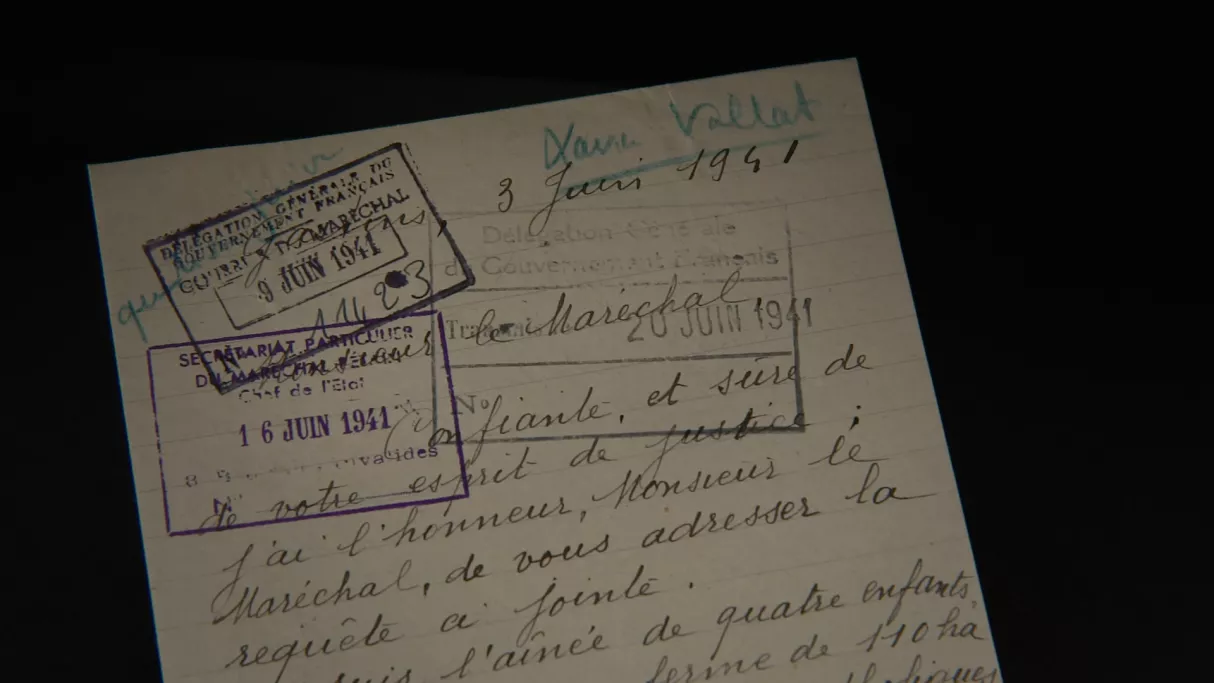 Xavier Vallat
3 Juin 1941
DÉLÉGATION GÉNÉRALE DU
GOUVERNEMENT FRANÇAIS
MARÉCHAL
9 JUIN 1941
1423
Délégation Générale
du Gouvernement Français
20 JUIN 1941
No
SECRÉTARIAT PARTICULIER
DU MARÉCHAL PÉTAIN
Chef de l'État
16 JUIN 1941
Invalides
No
Monsieur le Maréchal,
Confiante, et sûre de
de votre esprit de justice ;
j'ai l'honneur, Monsieur le
Maréchal, de vous adresser la
requête ci jointe.
suis l'aînée de quatre enfants,
ferme de 110 ha